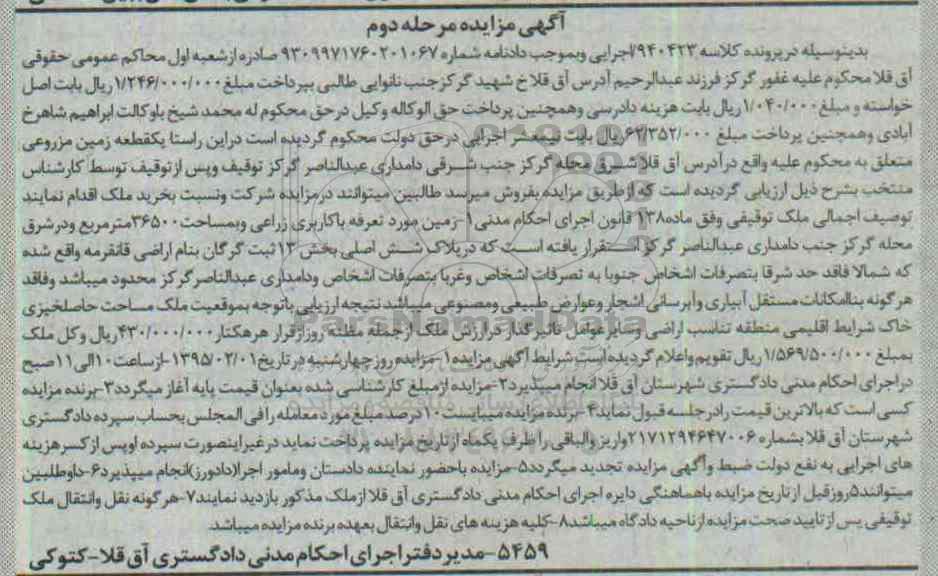 آگهی مزایده مرحله دوم
بدینوسیله در پرونده کلاسه ۹۴۰۴۲۳/اجرایی وبموجب دادنامه شماره ۹۳۰۹۹۷۱۷۶۰۲۰۱۰۶۷ صادره ازشعبه اول محاکم عمومی حقوقی
آق قلا محکوم علیه غفور گرکز فرزند عبدالرحیم آدرس آق قلا خ شهید گرکز جنب نانوایی طالبی بپرداخت مبلغ ۱/۲۴۶/۰۰۰/۰۰۰ ریال بابت اصل
خواسته و مبلغ ۱/۰۴۰/۰۰۰ ریال بابت هزینه دادرسی وهمچنین پرداخت حق الوکاله وکیل درحق محکوم له محمد شیخ باوکالت ابراهیم شاهرخ
آبادی وهمچنین پرداخت مبلغ ۶۲/۳۵۲/۰۰۰ ریال بابت نیمعشر اجرایی درحق دولت محکوم گردیده است دراین راستا یکقطعه زمین مزروعی
متعلق به محکوم علیه واقع درآدرس آق قلا شرق محله گرکز جنب شرقی دامداری عبدالناصر گرکز توقیف وپس ازتوقیف توسط کارشناس
منتخب بشرح ذیل ارزیابی گردیده است که ازطریق مزایده بفروش میرسد طالبین میتوانند درمزایده شرکت ونسبت بخرید ملک اقدام نمایند
توصیف اجمالی ملک توقیفی وفق ماده۱۳۸ قانون اجرای احکام مدنی۱-زمین مورد تعرفه باکاربری زراعی وبمساحت۳۶۵۰۰مترمربع ودرشرق
محله گرکز جنب دامداری عبدالناصر گرکز استقرار یافته است که درپلاک شش اصلی بخش ۱۳ ثبت گرگان بنام اراضی قانقرمه واقع شده
که شمالا فاقد حد شرقا بتصرفات اشخاص جنوبا به تصرفات اشخاص وغربا بتصرفات اشخاص ودامداری عبدالناصر گرکز محدود میباشد وفاقد
هرگونه بناامکانات مستقل آبیاری وآبرسانی اشجار وعوارض طبیعی ومصنوعی میباشد نتیجه ارزیابی باتوجه بموقعیت ملک مساحت حاصلخیزی
خاک شرایط اقلیمی منطقه تناسب اراضی وسایرعوامل تاثیرگذار درارزش ملک ازجمله مظنه روزازقرار هرهکتار ۴۳۰/۰۰۰/۰۰۰ریال وکل ملک
بمبلغ ۱/۵۶۹/۵۰۰/۰۰۰ ریال تقویم واعلام گردیده است شرایط آگهی مزایده۱-مزایده روز چهارشنبه در تاریخ ۱۳۹۵/۰۲/۰۱-ازساعت ۱۰الی ۱۱ صبح
دراجرای احکام مدنی دادگستری شهرستان آق قلا انجام میپذیرد۲-مزایده ازمبلغ کارشناسی شده بعنوان قیمت پایه آغاز میگردد۳-برنده مزایده
کسی است که بالاترین قیمت رادرجلسه قبول نماید۴-برنده مزایده میبایست ۱۰درصد مبلغ مورد معامله رافی المجلس بحساب سپرده دادگستری
شهرستان آق قلا بشماره ۲۱۷۱۲۹۴۶۴۷۰۰۶واریز والباقی را ظرف یکماه ازتاریخ مزایده پرداخت نماید درغیراینصورت سپرده اوپس ازکسرهزینه
های اجرایی به نفع دولت ضبط وآگهی مزایده تجدید میگردد۵-مزایده باحضور نماینده دادستان ومامور اجرا(دادورز)انجام میپذیرد۶-داوطلبین
میتوانند۵روزقبل ازتاریخ مزایده باهماهنگی دایره اجرای احکام مدنی دادگستری آق قلا ازملک مذکور بازدید نمایند۷-هرگونه نقل وانتقال ملک
توقیفی پس ازتایید صحت مزایده ازناحیه دادگاه میباشد۸-کلیه هزینه های نقل وانتقال بعهده برنده مزایده میباشد.
۵۴۵۹-مدیردفتراجرای احکام مدنی دادگستری آق قلا-کتوکی